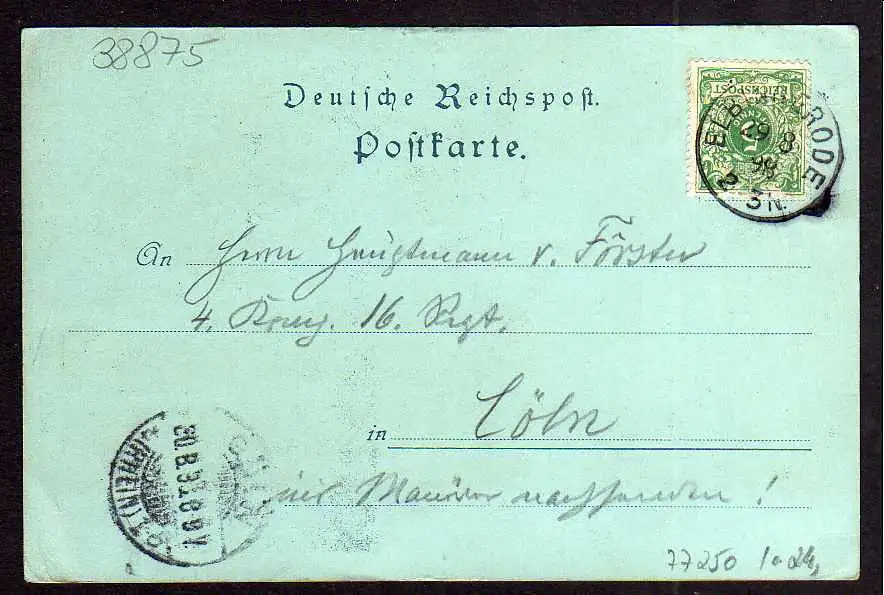 38875
Deutsche Reichspost.
Postkarte.
REICHSPOST
5
29 8
98
2 3N.
An Herrn Hauptmann v. Förster
4. Komp. 16. Regt.
in Cöln
ins Manöver nachsenden!
(RHEIN)
30.8.98.8-9V.
77250